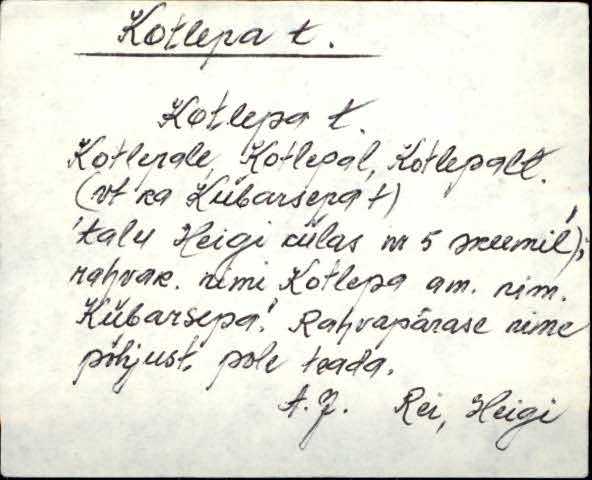 Kotlepa t.
Kotlepa t.
Kotlepale, Kotlepal, Kotlepalt.
(vt ka Kübarsepa t)
'talu Heigi külas nr 5 skeemil';
rahvak. nimi Kotlepa am. nim.
Kübarsepa. Rahvapärase nime
põhjust pole teada.
A. J. Rei, Heigi